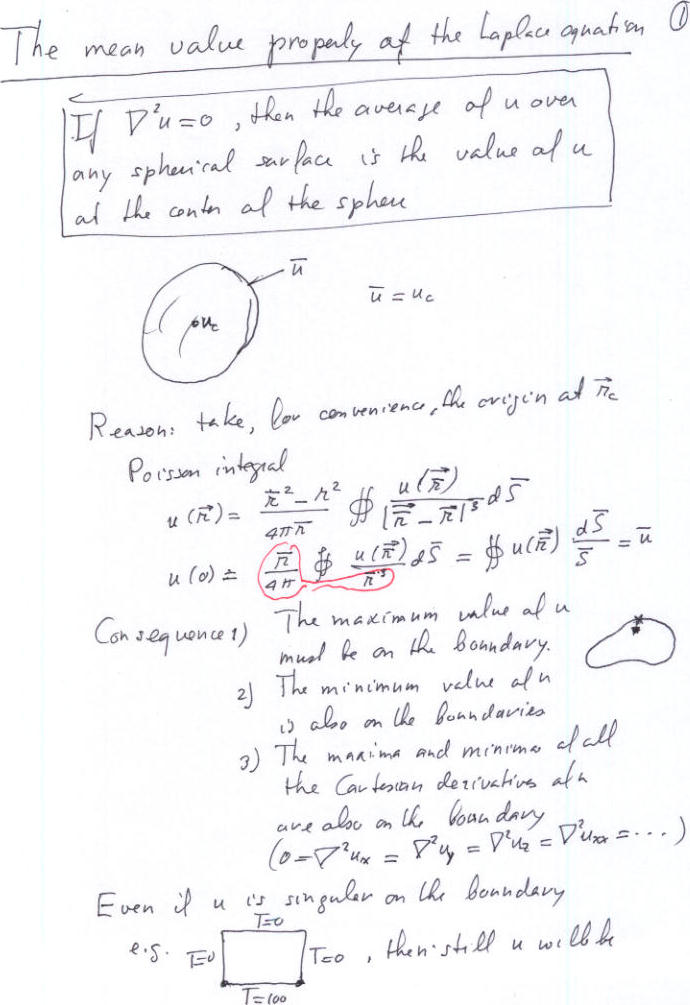 The mean value property of the Laplace equation ①
If ∇²u=0, then the average of u over
any spherical surface is the value of u
at the center of the sphere
ū
u_c
ū = u_c
Reason: take, for convenience, the origin at r⃗_c
Poisson integral
u(r⃗) = (r̄² − r²)/(4πr̄) ∯ u(r̄⃗)/|r̄⃗ − r⃗|³ dS̄
u(0) = r̄/4π ∯ u(r̄⃗)/r̄³ dS̄ = ∯ u(r̄⃗) dS̄/S̄ = ū
Consequence 1) The maximum value of u
must be on the boundary.
2) The minimum value of u
is also on the boundaries
3) The maxima and minima of all
the Cartesian derivatives of u
are also on the boundary
(0 = ∇²u_x = ∇²u_y = ∇²u_z = ∇²u_xx = ...)
Even if u is singular on the boundary
T=0
e.g. T=0 T=0, then still u will be
T=100